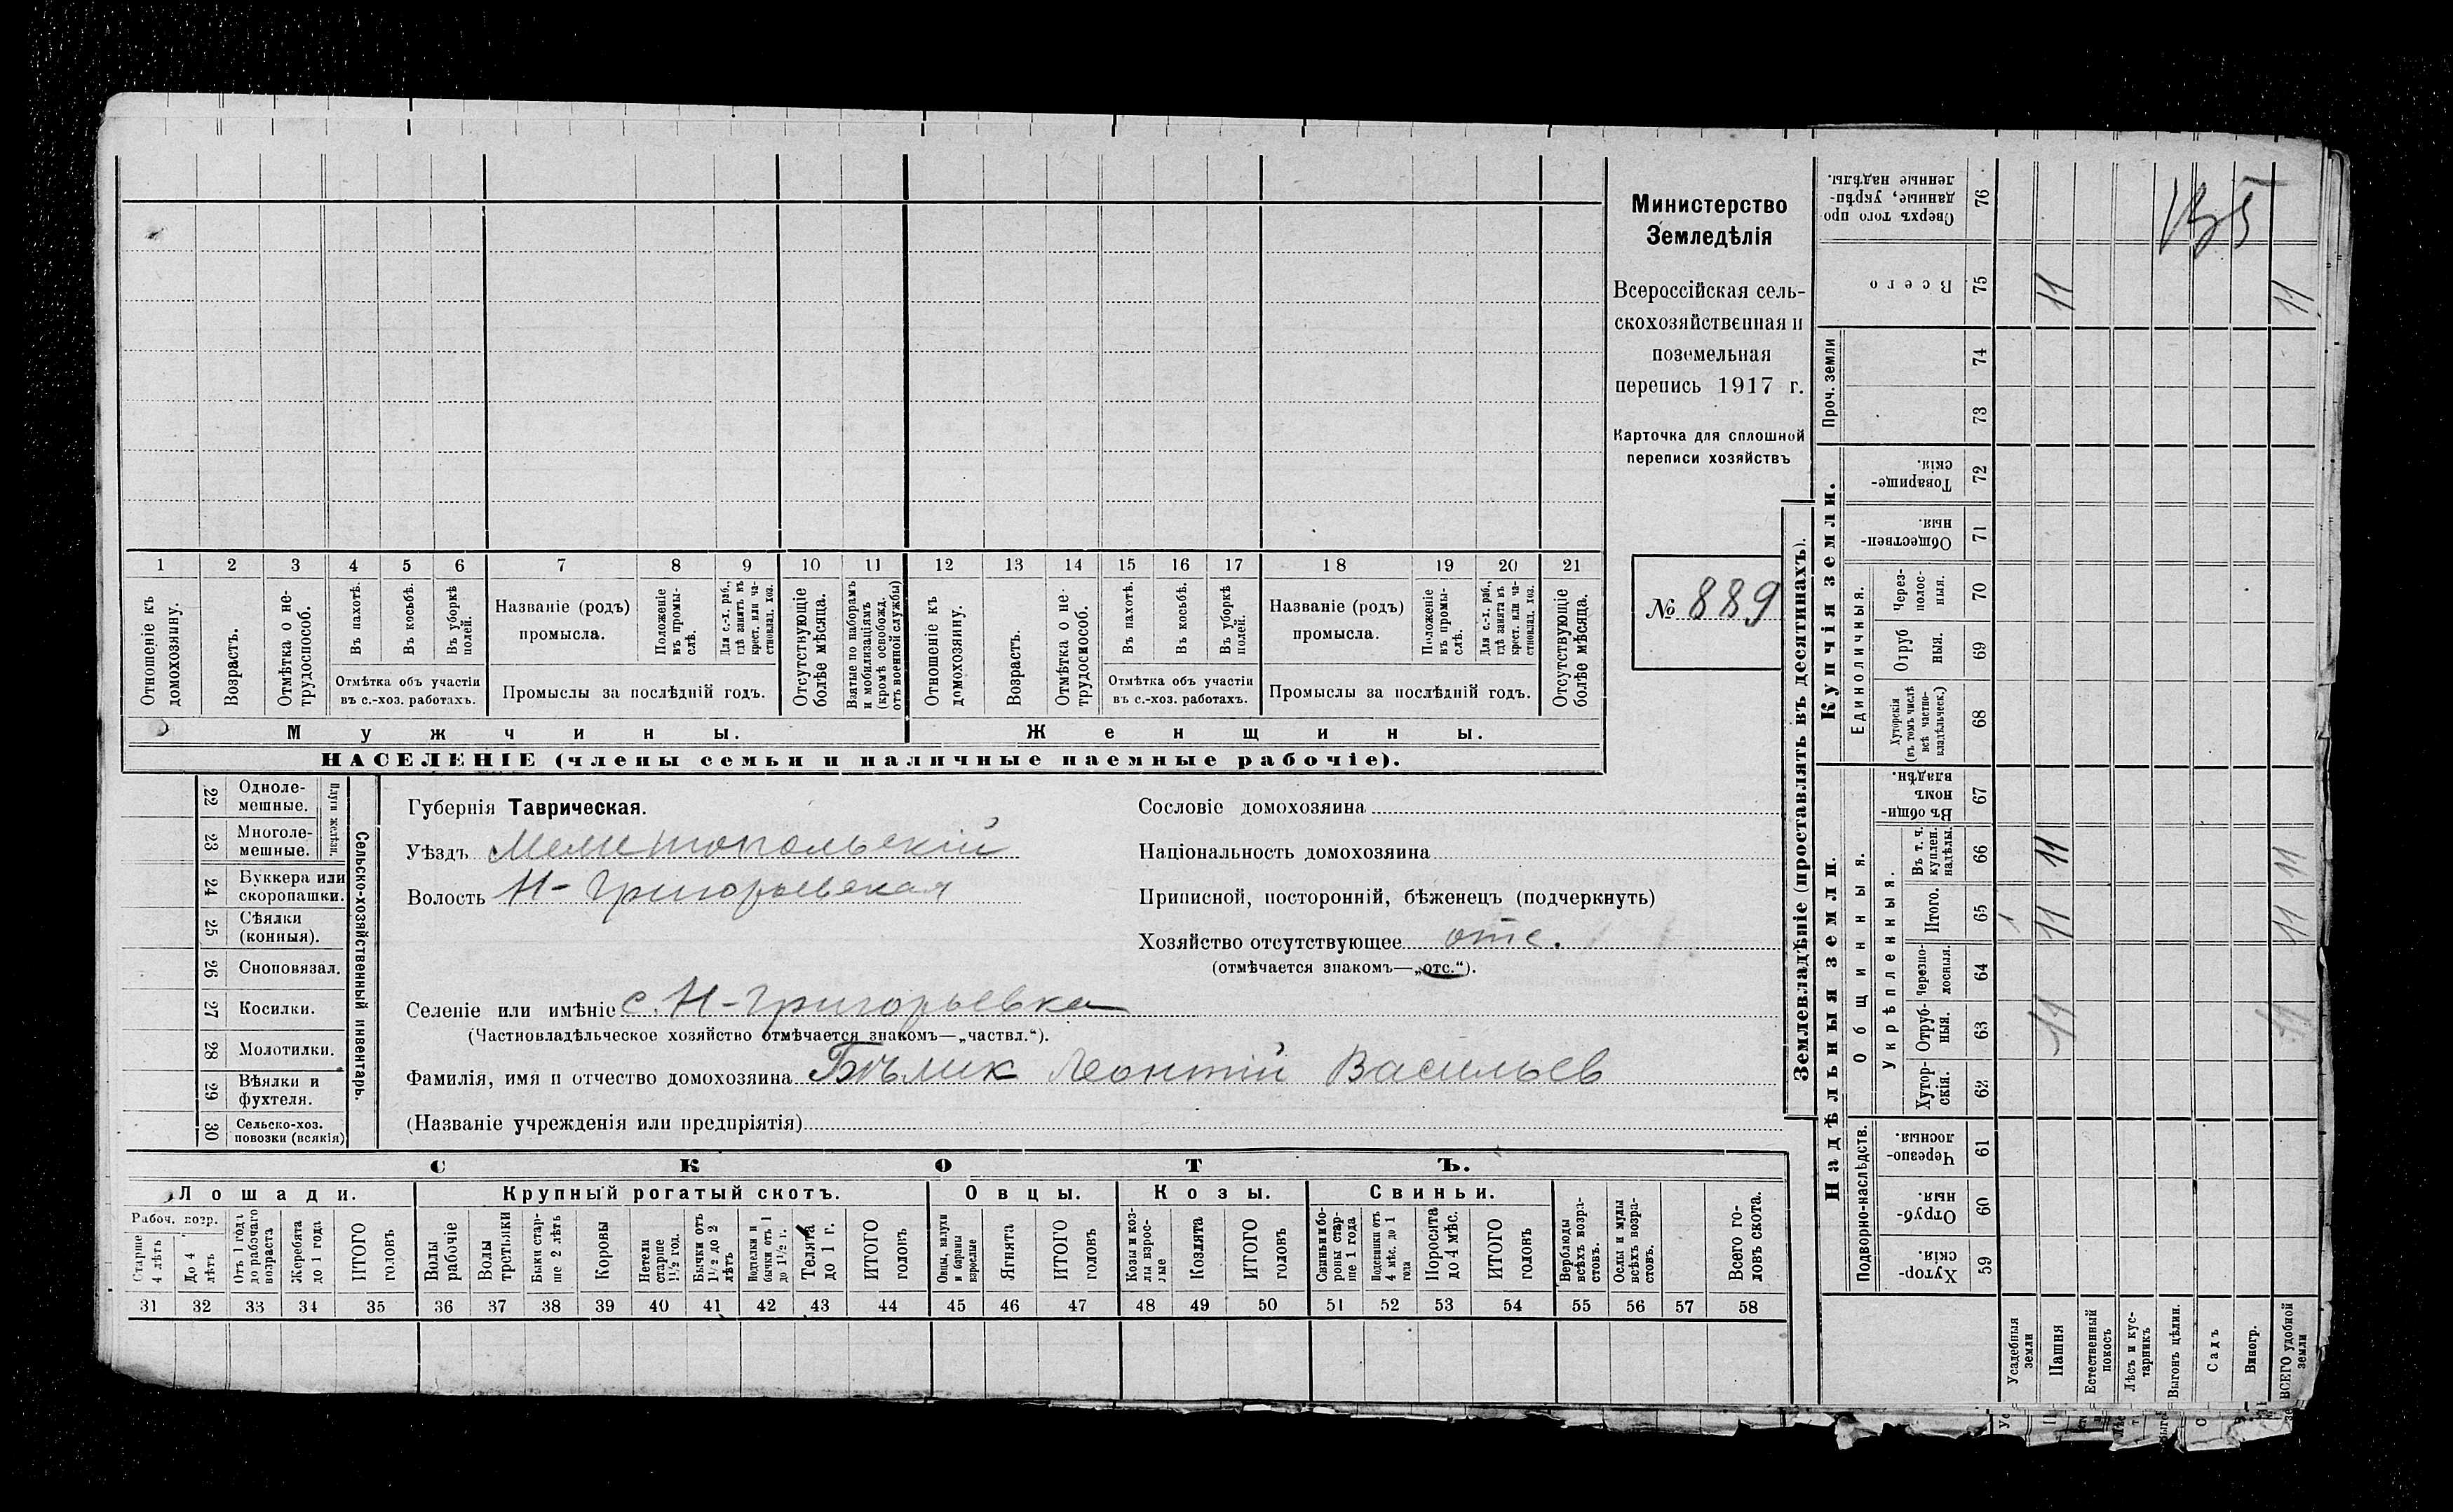 Министерство
Земледѣлія
Всероссійская сель-
скохозяйственная и
поземельная
перепись 1917 г.
Карточка для сплошной
переписи хозяйствъ
№ 889
1 2 3 4 5 6 7 8 9 10 11 12 13 14 15 16 17 18 19 20 21
Отношеніе къ домохозяину.
Возрастъ.
Отмѣтка о не-трудоспособ.
Въ пахотѣ.
Въ косьбѣ.
Въ уборкѣ полей.
Отмѣтка объ участіи
въ с.-хоз. работахъ.
Названіе (родъ)
промысла.
Положеніе въ промы-слѣ.
Для с.-х. раб., гдѣ занятъ въ крест. или ча-стновлад. хоз.
Промыслы за послѣдній годъ.
Отсутствующіе болѣе мѣсяца.
Взятые по наборамъ и мобилизаціямъ (кромѣ освобожд. отъ военной службы)
Отношеніе къ домохозяину.
Возрастъ.
Отмѣтка о не-трудоспособ.
Въ пахотѣ.
Въ косьбѣ.
Въ уборкѣ полей.
Отмѣтка объ участіи
въ с.-хоз. работахъ.
Названіе (родъ)
промысла.
Положеніе въ промы-слѣ.
Для с.-х. раб., гдѣ занята въ крест. или ча-стновлад. хоз.
Промыслы за послѣдній годъ.
Отсутствующіе болѣе мѣсяца.
Мужчины.
Женщины.
НАСЕЛЕНІЕ (члены семьи и наличные наемные рабочіе).
Сельско-хозяйственный инвентарь.
Плуги желѣзн.
22 Одноле-
мешные.
23 Многоле-
мешные.
24 Буккера или
скоропашки.
25 Сѣялки
(конныя).
26 Сноповязал.
27 Косилки.
28 Молотилки.
29 Вѣялки и
фухтеля.
30 Сельско-хоз.
повозки (всякія)
Губернія Таврическая.
Уѣздъ Мелитопольскій
Волость Н-Григорьевская
Сословіе домохозяина
Національность домохозяина
Приписной, посторонній, бѣженецъ (подчеркнуть)
Хозяйство отсутствующее отс.
(отмѣчается знакомъ—„отс.“).
Селеніе или имѣніе с. Н-Григорьевка
(Частновладѣльческое хозяйство отмѣчается знакомъ—„частвл.“).
Фамилія, имя и отчество домохозяина Бѣлик Леонтій Васильев
(Названіе учрежденія или предпріятія)
СКОТЪ.
Лошади.
Крупный рогатый скотъ.
Овцы.
Козы.
Свиньи.
Рабоч. возр.
Старше 4 лѣтъ
До 4 лѣтъ
Отъ 1 года до рабочаго возраста
Жеребята до 1 года
ИТОГО головъ
Волы рабочіе
Волы третьяки
Быки стар-ше 2 лѣтъ
Коровы
Нетели старше 1 1/2 год.
Бычки отъ 1 1/2 до 2 лѣтъ
Воделки и бычки отъ 1 до 1 1/2 г.
Телята до 1 г.
ИТОГО головъ
Овцы, валухи и бараны взрослые
Ягнята
ИТОГО головъ
Козы и коз-лы взрос-лые
Козлята
ИТОГО головъ
Свиньи и бо-ровы стар-ше 1 года
Подсвинки отъ 4 мѣс. до 1 года
Поросята до 4 мѣс.
ИТОГО головъ
Верблюды всѣхъ возра-стовъ.
Ослы и мулы всѣхъ возра-стовъ.
Всего го-ловъ скота.
31 32 33 34 35 36 37 38 39 40 41 42 43 44 45 46 47 48 49 50 51 52 53 54 55 56 57 58
Землевладѣніе (проставлять въ десятинахъ).
Купчія земли.
Надѣльныя земли.
Проч. земли
Единоличныя.
Общинныя.
Укрѣпленныя.
Подворно-наслѣдств.
Сверхъ того про данные, укрѣп-ленные надѣлы. 76
Всего 75 11 11
74
73
Товарище-скія. 72
Обществен-ныя. 71
Через-полос-ныя. 70
Отруб ныя. 69
Хуторскія (въ томъ числѣ всѣ частно-владѣльческ.) 68
Въ общи-номъ владѣн. 67
Въ т. ч. куплен. надѣлы. 66 11 11
Итого. 65 1 11 11
Черезпо-лосныя. 64
Отруб-ныя. 63 11 11
Хутор-скія. 62
Черезпо-лосныя. 61
Отруб-ныя. 60
Хутор-скія. 59
Усадебныя земли
Пашня
Естественный покосъ
Лѣсъ и кус-тарникъ
Выгонъ цѣлин.
Садъ
Виногр.
ВСЕГО удобной земли